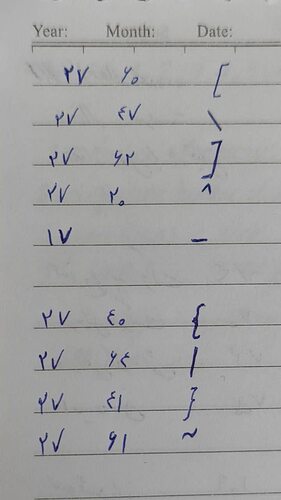 Year: Month: Date:
۲۷ ۶۰ [
۲۷ ٤۷ \
۲۷ ۶۲ ]
۲۷ ۲۰ ^
۱۷ _
۲۷ ٤۰ {
۲۷ ۶٤ |
۲۷ ٤۱ }
۲۷ ۶۱ ~